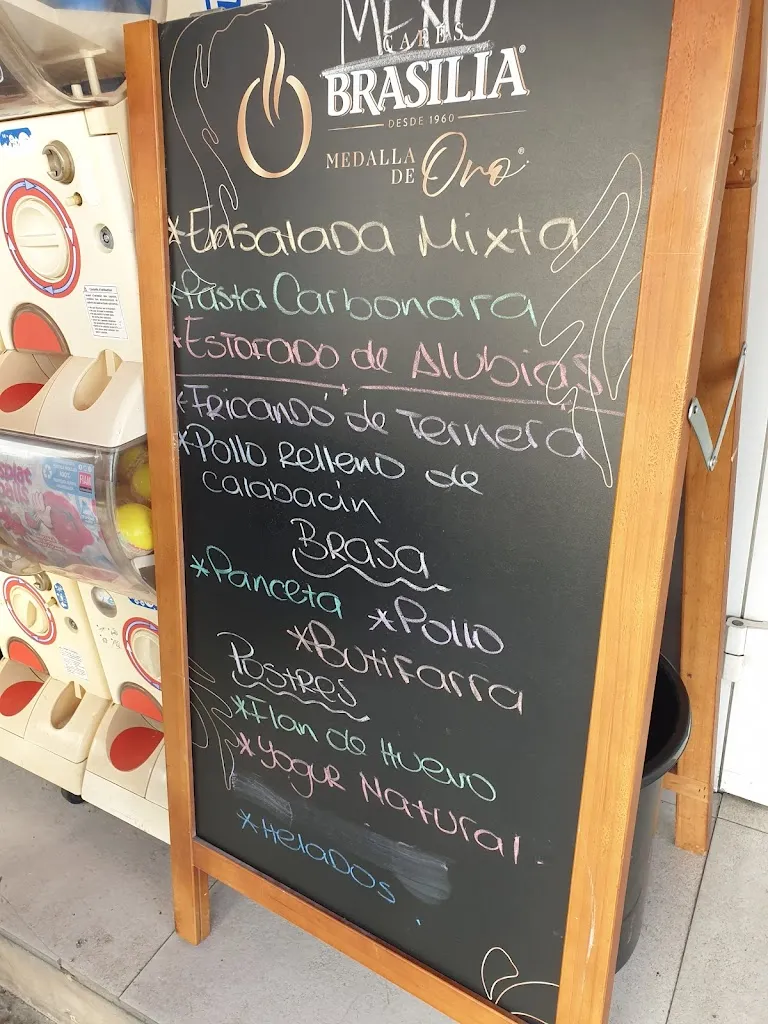 MENÚ
CAFÉS
BRASILIA®
DESDE 1960
MEDALLA
DE Oro®
*Ensalada Mixta
*Pasta Carbonara
*Estofado de Alubias
*Fricandó de Ternera
*Pollo Relleno de
calabacín
Brasa
*Panceta *Pollo
*Butifarra
Postres
*Flan de Huevo
*Yogur Natural
*Helados